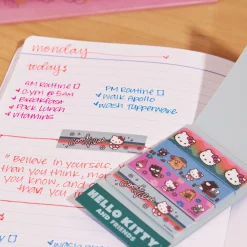 monday
today:
AM Routine
Gym @ 5am
Breakfast
Pack Lunch
Vitamins
PM Routine
walk Apollo
wash Tupperware
"Believe in yourself,
than you think,
know, and
than you
HELLO KITTY
AND FRIENDS